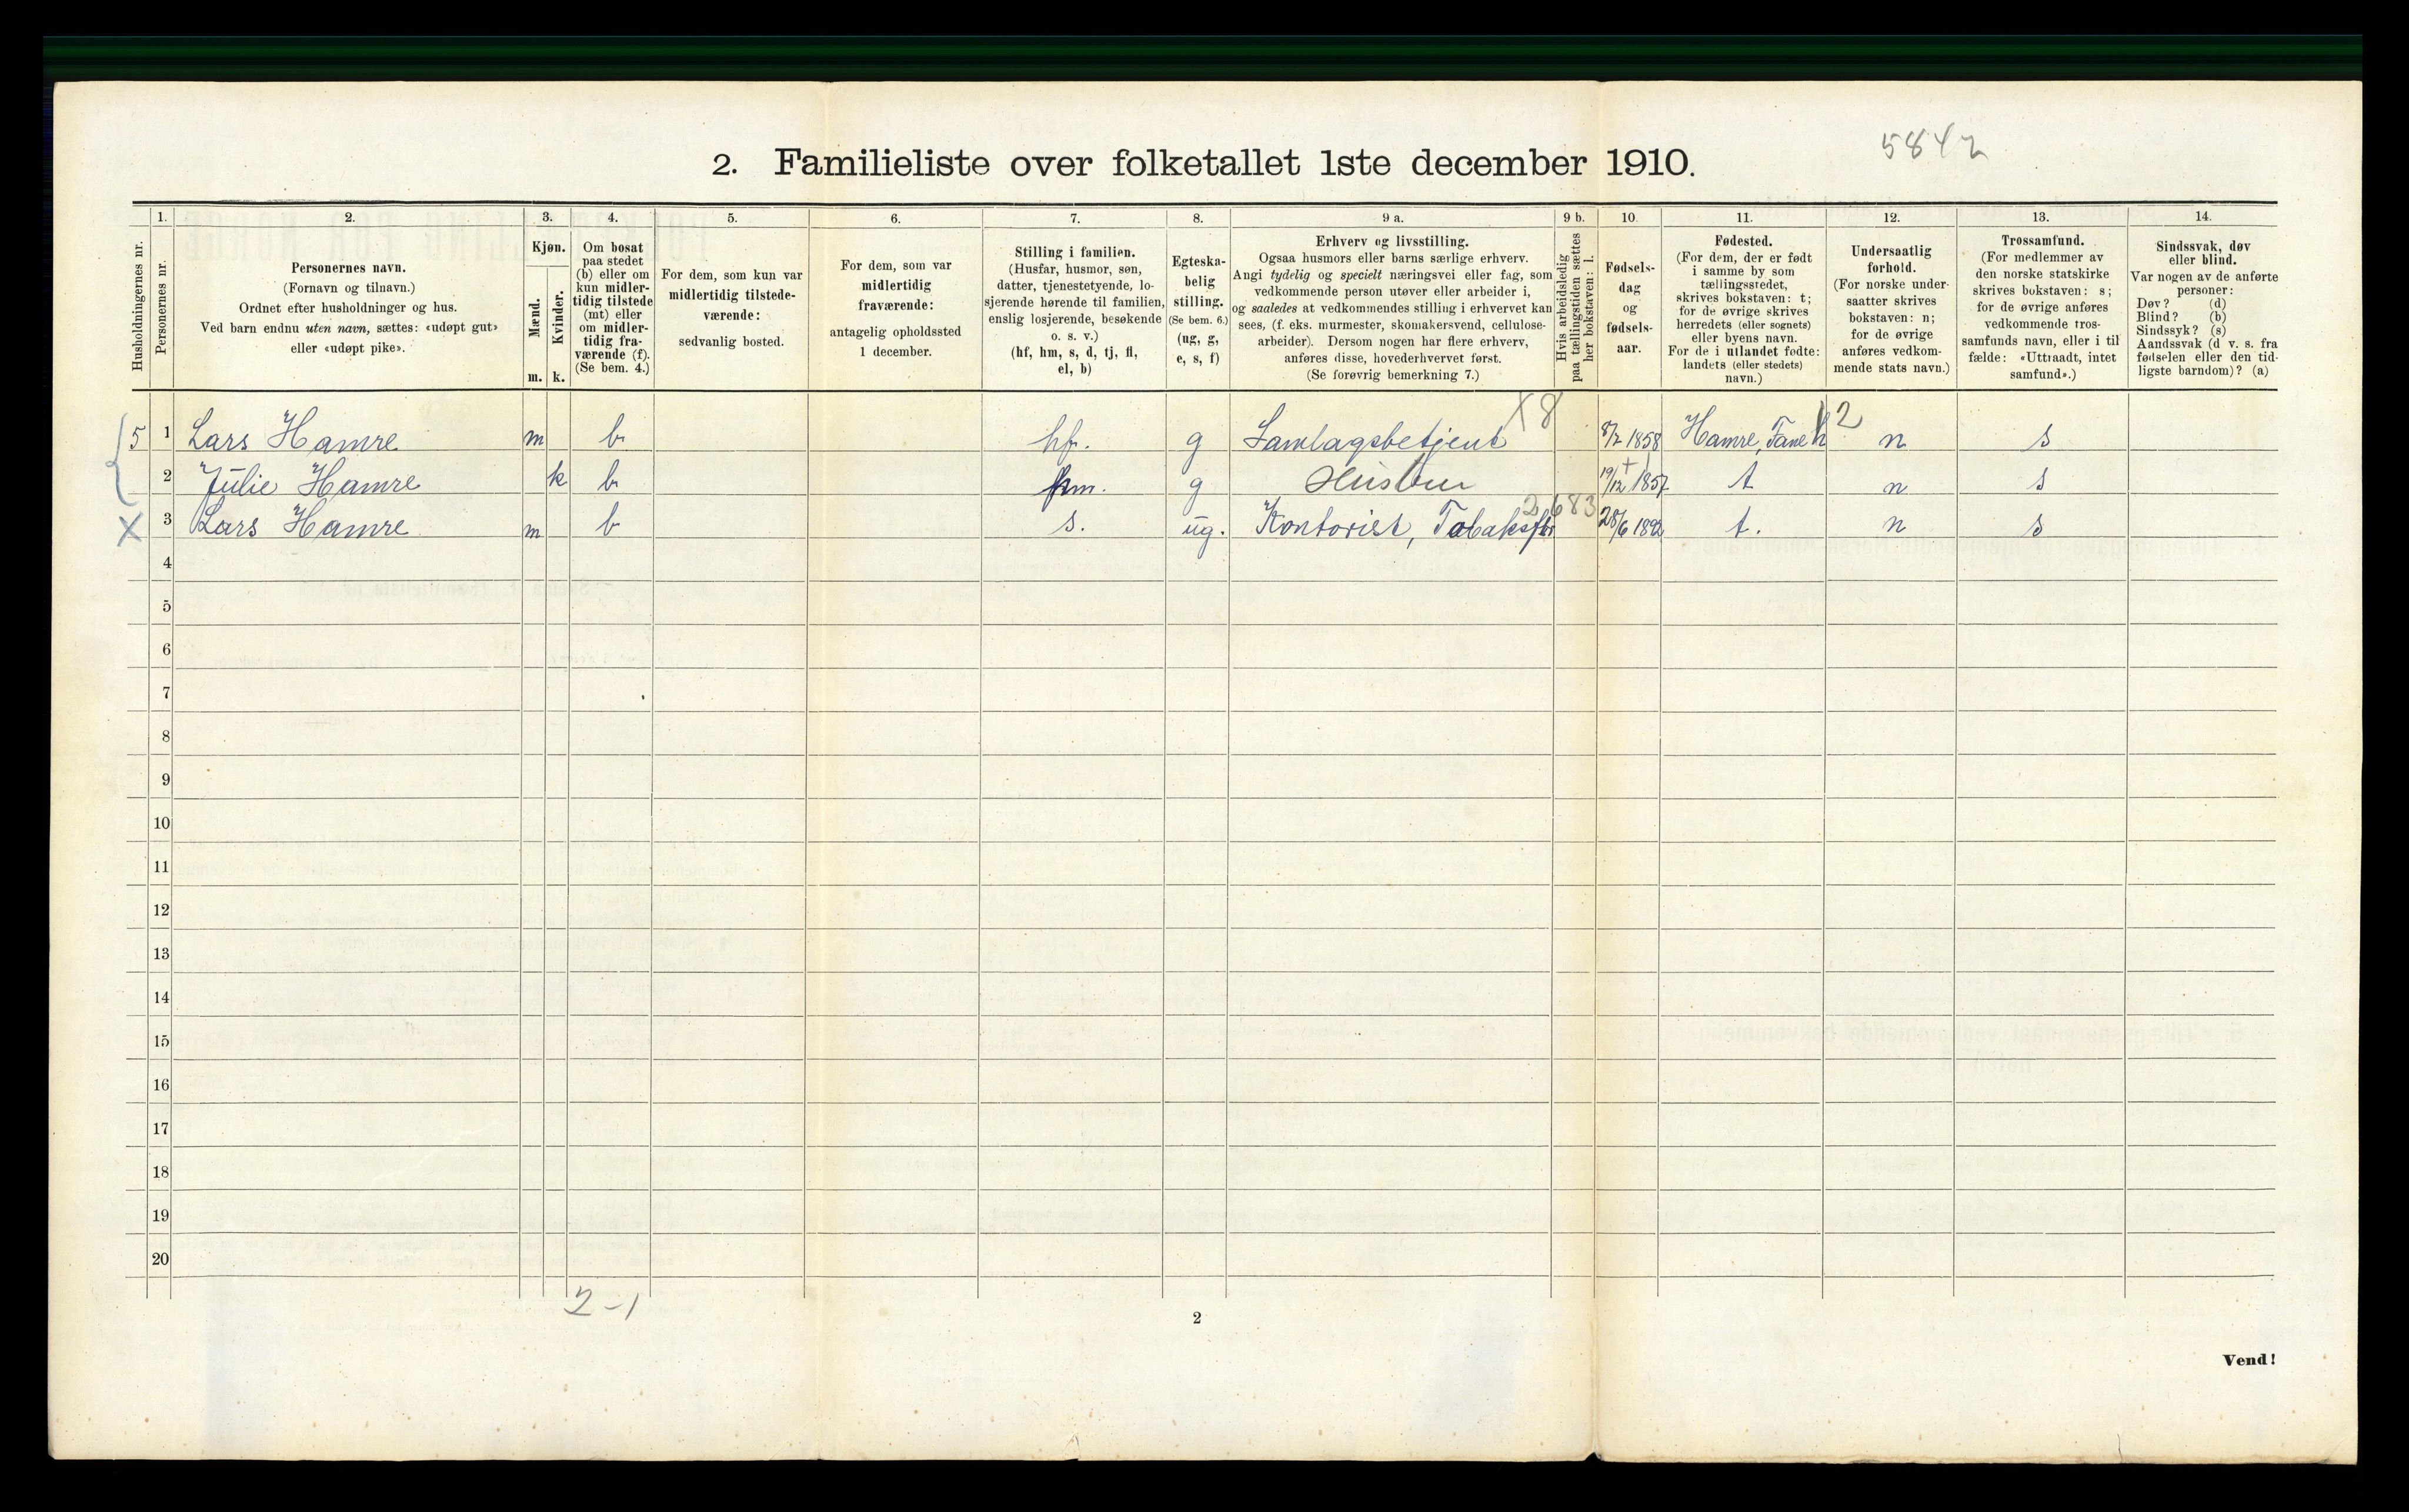 5842
2. Familieliste over folketallet 1ste december 1910.
Husholdningernes nr.
1. Personernes nr.
2. Personernes navn. (Fornavn og tilnavn.) Ordnet efter husholdninger og hus. Ved barn endnu uten navn, sættes: «udøpt gut» eller «udøpt pike».
3. Kjøn. Mænd. m. Kvinder. k.
4. Om bosat paa stedet (b) eller om kun midlertidig tilstede (mt) eller om midlertidig fraværende (f). (Se bem. 4.)
5. For dem, som kun var midlertidig tilstedeværende: sedvanlig bosted.
6. For dem, som var midlertidig fraværende: antagelig opholdssted 1 december.
7. Stilling i familien. (Husfar, husmor, søn, datter, tjenestetyende, losjerende hørende til familien, enslig losjerende, besøkende o. s. v.) (hf, hm, s, d, tj, fl, el, b)
8. Egteskabelig stilling. (Se bem. 6.) (ug, g, e, s, f)
9 a. Erhverv og livsstilling. Ogsaa husmors eller barns særlige erhverv. Angi tydelig og specielt næringsvei eller fag, som vedkommende person utøver eller arbeider i, og saaledes at vedkommendes stilling i erhvervet kan sees, (f. eks. murmester, skomakersvend, cellulosearbeider). Dersom nogen har flere erhverv, anføres disse, hovederhvervet først. (Se forøvrig bemerkning 7.)
9 b. Hvis arbeidsledig paa tællingstiden sættes her bokstaven: l.
10. Fødselsdag og fødselsaar.
11. Fødested. (For dem, der er født i samme by som tællingsstedet, skrives bokstaven: t; for de øvrige skrives herredets (eller sognets) eller byens navn. For de i utlandet fødte: landets (eller stedets) navn.)
12. Undersaatlig forhold. (For norske undersaatter skrives bokstaven: n; for de øvrige anføres vedkommende stats navn.)
13. Trossamfund. (For medlemmer av den norske statskirke skrives bokstaven: s; for de øvrige anføres vedkommende trossamfunds navn, eller i tilfælde: «Uttraadt, intet samfund».)
14. Sindssvak, døv eller blind. Var nogen av de anførte personer: Døv? (d) Blind? (b) Sindssyk? (s) Aandssvak (d. v. s. fra fødselen eller den tidligste barndom)? (a)
5 1 Lars Hamre m b hf. g Samlagsbetjent X8 8/2 1858 Hamre, Fane 12 n s
2 Julie Hamre k b hm. g Hustru 19/12 1857 t n s
X 3 Lars Hamre m b s. ug. Kontorist, Tobaksfbr 2683 28/6 1892 t. n s
4
5
6
7
8
9
10
11
12
13
14
15
16
17
18
19
20
2-1
2
Vend!